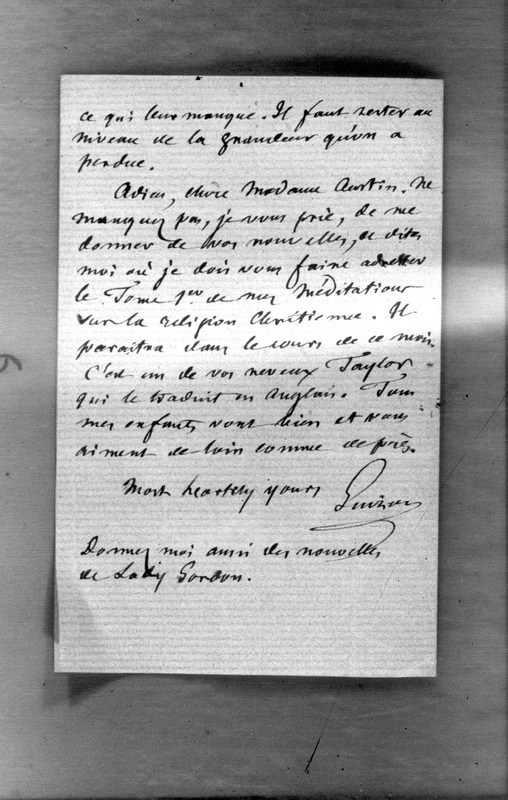 ce qui leur manque. Il faut rester au
niveau de la grandeur qu'on a
perdue.
Adieu, chère Madame Austin. Ne
manquez pas, je vous prie, de me
donner de vos nouvelles, et dites
moi où je dois vous faire adresser
le Tome 1er de mes Méditations
sur la religion Chrétienne. Il
paraitra dans le cours de ce mois.
C'est un de vos neveux Taylor
qui le traduit en Anglais. Tous
mes enfants vont bien et vous
aiment de loin comme de près.
Most heartely yours
Guizot
Donnez moi aussi des nouvelles
de Lady Gordon.